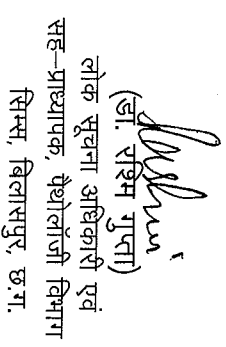 (डॉ. रश्मि गुप्ता)
लोक सूचना अधिकारी एवं
सह-प्राध्यापक, पैथोलॉजी विभाग
सिम्स, बिलासपुर, छ.ग.